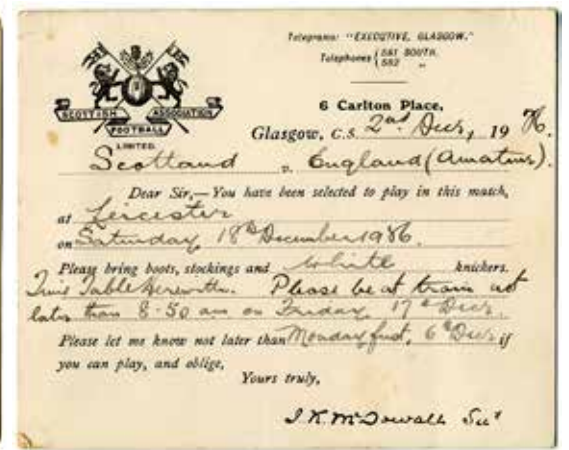 Telegrams: "EXECUTIVE, GLASGOW."
Telephones { 581 SOUTH.
582 "
SCOTTISH FOOTBALL ASSOCIATION
LIMITED.
6 Carlton Place,
Glasgow, C.S. 2nd Decr, 1926.
Scotland v. England (Amateurs).
Dear Sir,—You have been selected to play in this match,
at Leicester
on Saturday 18th December 1926.
Please bring boots, stockings and White knickers.
Time Table herewith. Please be at train not
later than 8-50 am on Friday, 17th Decr.
Please let me know not later than Monday first, 6th Decr if
you can play, and oblige,
Yours truly,
J. K. McDowall Secy